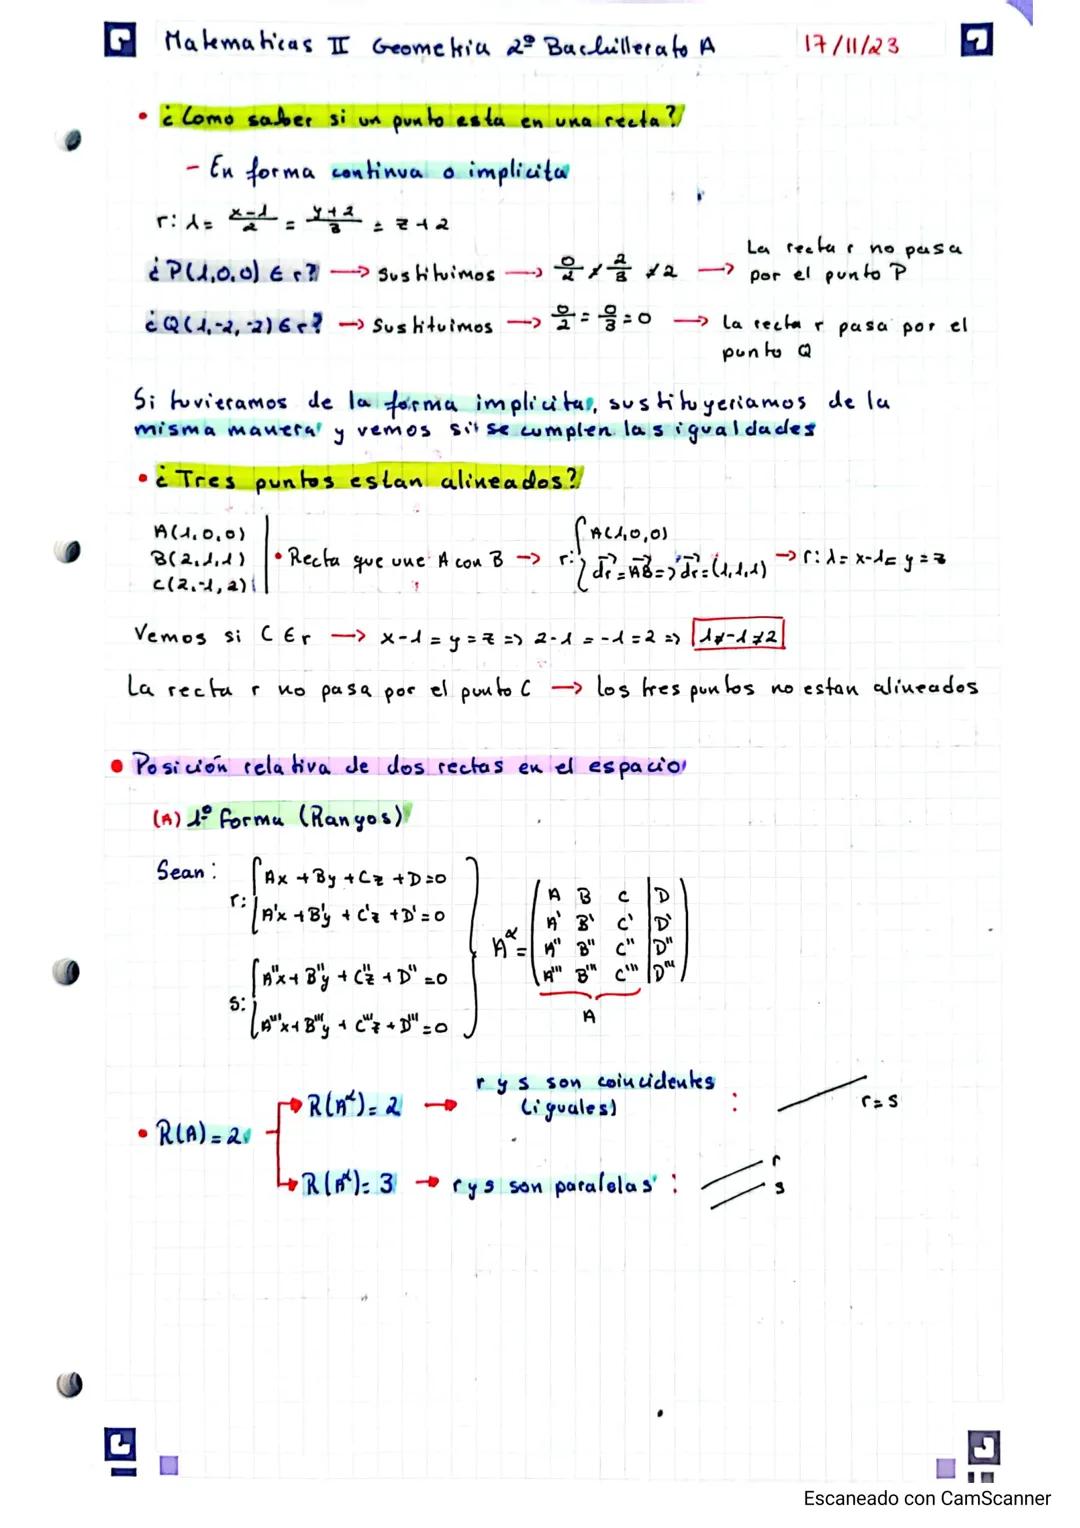 Matematicas II Geometria 2º Bachillerato A 17/11/23
• ¿Como saber si un punto esta en una recta?
- En forma continua o implicita
r: λ = x-1/2 = y+2/3 = z+2
¿P(1,0,0) ∈ r? → Sustituimos → 0/2 ≠ 2/3 ≠ 2 → La recta r no pasa
por el punto P
¿Q(1,-2,-2) ∈ r? → Sustituimos → 0/2 = 0/3 = 0 → La recta r pasa por el
punto Q
Si tuvieramos de la forma implicita, sustituyeriamos de la
misma manera y vemos si se cumplen las igualdades
• ¿Tres puntos estan alineados?
A(1,0,0)
B(2,1,1)
C(2,-1,2)
• Recta que une A con B → r: { A(1,0,0)
dr = AB => dr = (1,1,1) → r: λ = x-1 = y = z
Vemos si C ∈ r → x-1 = y = z => 2-1 = -1 = 2 => 1≠-1≠2
La recta r no pasa por el punto C → los tres puntos no estan alineados
• Posición relativa de dos rectas en el espacio
(A) 1º forma (Rangos)
Sean:
r: { Ax + By + Cz + D = 0
A'x + B'y + C'z + D' = 0
s: { A''x + B''y + C''z + D'' = 0
A'''x + B'''y + C'''z + D''' = 0
A^α =
A B C | D
A' B' C' | D'
A'' B'' C'' | D''
A''' B''' C''' | D'''
A
• R(A) = 2
R(A^α) = 2 → r y s son coincidentes
(iguales) : r=s
R(A^α) = 3 → r y s son paralelas : r
s
Escaneado con CamScanner